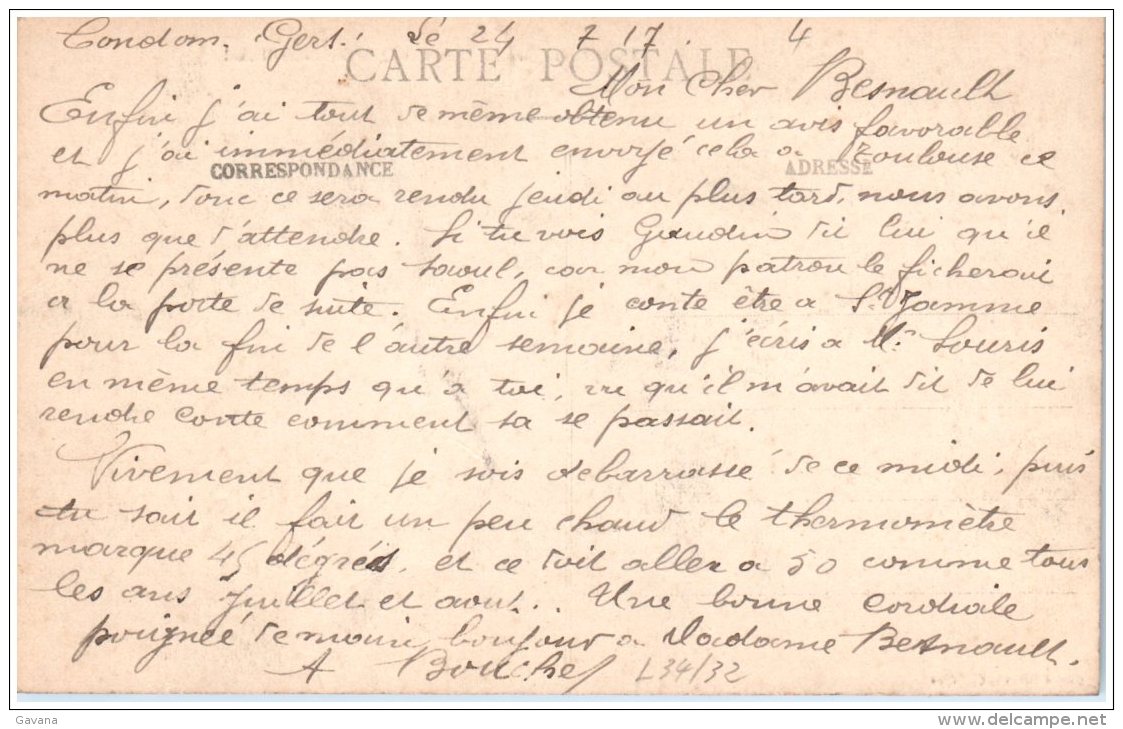 Condom. Gers. Le 24 7 17. 4
CARTE POSTALE
Mon Cher Besnault
Enfin j'ai tout de même obtenu un avis favorable
et j'ai immédiatement envoyé cela a Toulouse ce
CORRESPONDANCE
ADRESSE
matin, donc ce sera rendu jeudi au plus tard, nous avons
plus que d'attendre. Si tu vois Gaudin dit lui qu'il
ne se présente pas saoul, car mon patron le ficherai
a la porte de suite. Enfin je conte être a St Jamme
pour la fin de l'autre semaine, j'écris a Mr Souris
en même temps qu'a toi, vu qu'il m'avait dit de lui
rendre conte comment sa se passait.
Vivement que je sois debarrassé de ce midi, puis
tu sait il fait un peu chaud le thermomètre
marque 45 dégrés, et ce doit aller a 50 comme tous
les ans Juillet et aout... Une bonne cordiale
poignée de main, bonjour a Madame Besnault.
A Bouchet
L34/32
Gavana
delcampe.net